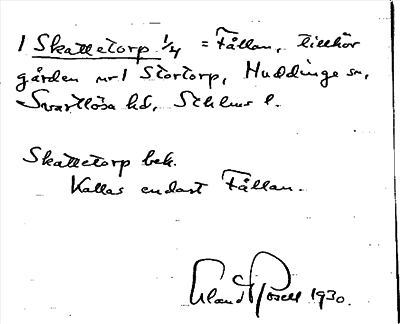 1 Skattetorp 1/4 = Fållan, tillhör
gården nr 1 Stortorp, Huddinge sn,
Svartlösa hd, Sthlms l.
Skattetorp bek.
Kallas endast Fållan.
Rosell 1930.